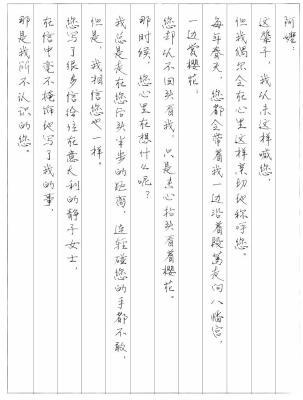 阿嬷，
这辈子，我从未这样喊您，
但我偶尔会在心里这样亲切地称呼您。
每年春天，您都会带着我一边沿着段葛走向八幡宫，
一边赏樱花。
您却从不回头看我，只是专心抬头看着樱花。
那时候，您心里在想什么呢？
我总是走在您后头半步的距离，连轻碰您的手都不敢，
但是，我相信您也一样。
您写了很多信给住在意大利的静子女士，
在信中毫不掩饰地写了我的事，
那是我所不认识的您。